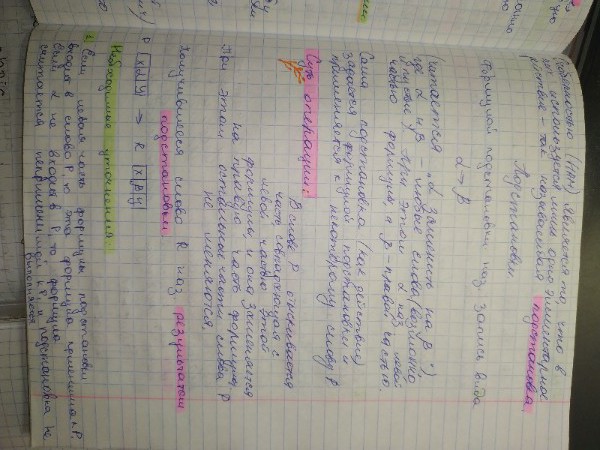 Особенностью (НАМ) является то, что в
них используется лишь одно элементарное
действие - так называемая подстановка.
Подстановки.
Формулой подстановки наз. запись вида
α → β
(читается „α заменить на β"),
где α и β - любые слова (возможно,
и пустые). При этом α наз. левой
частью формулы, а β - правой частью.
Сама подстановка (как действие)
задается формулой подстановки и
применяется к некоторому слову P
Суть операции:
В слове P отыскивается
часть, совпадающая с
левой частью этой
формулы, и она заменяется
на правую часть формулы.
При этом остальные части слова P
не меняются.
Получившееся слово R наз. результатом
подстановки.
P x α y → R x β y
Необходимые уточнения:
1. Если левая часть формулы подстановки
входит в слово P, то эта формула применима к P.
Если α не входит в P, то формула
считается неприменимой к P, и подстановка не
выполняется